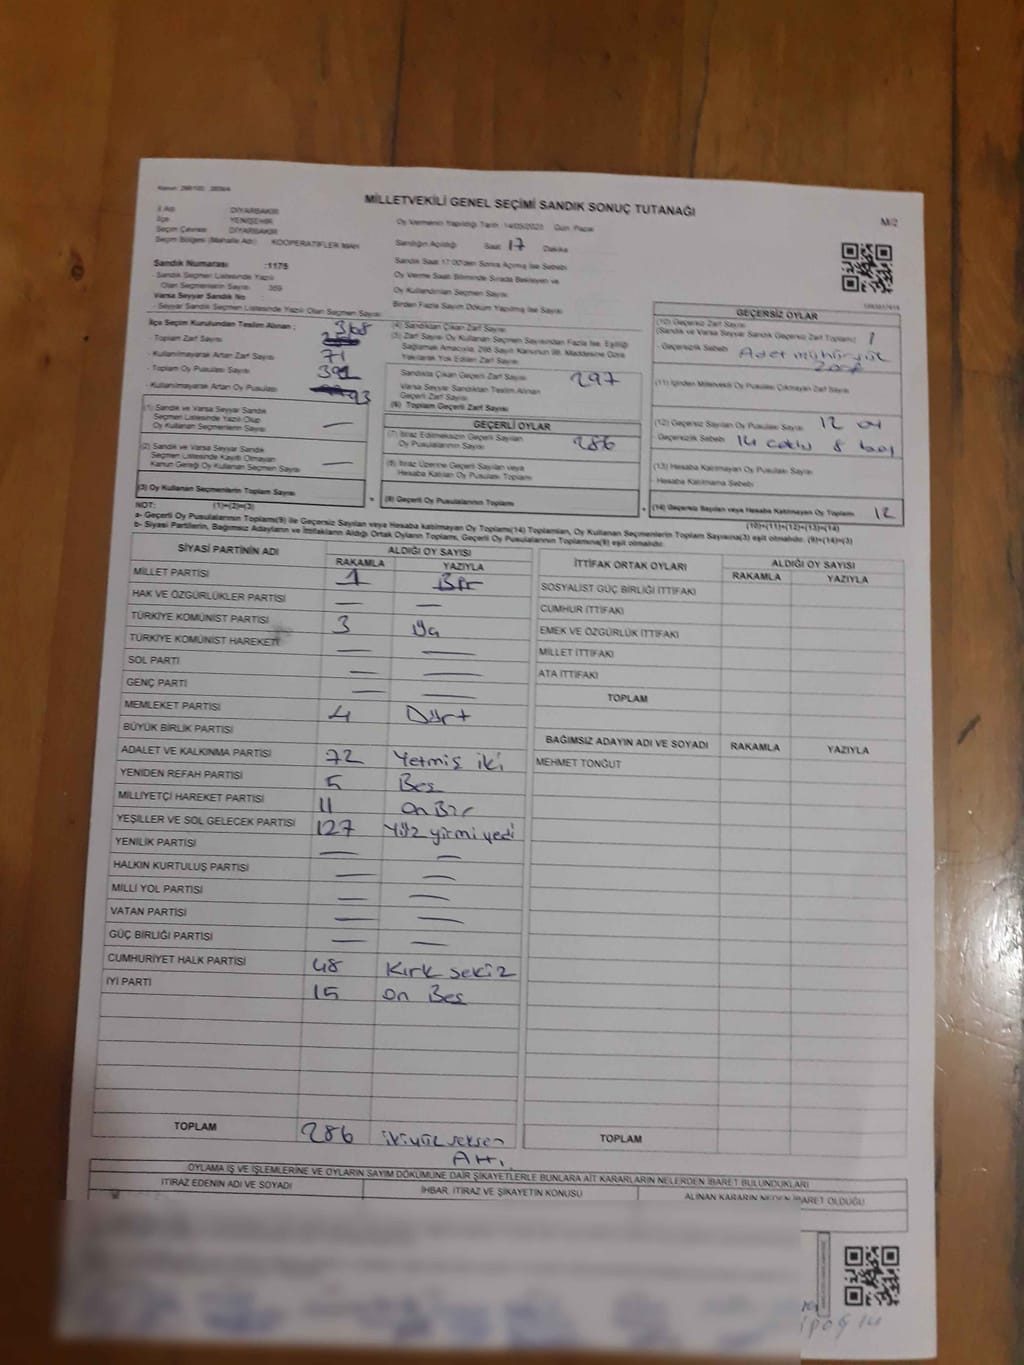 MİLLETVEKİLİ GENEL SEÇİMİ SANDIK SONUÇ TUTANAĞI
M/2
İl Adı DİYARBAKIR
İlçe YENİŞEHİR
Seçim Çevresi DİYARBAKIR
Seçim Bölgesi (Mahalle Adı) KOOPERATİFLER MAH
Oy Vermenin Yapıldığı Tarih 14/05/2023 Gün Pazar
Sandığın Açıldığı Saat 17 Dakika
Sandık Saat 17:00'den Sonra Açılmış İse Sebebi
Oy Verme Saati Bitiminde Sırada Bekleyen ve
Oy Kullandırılan Seçmen Sayısı
Birden Fazla Sayım Döküm Yapılmış İse Sayısı
Sandık Numarası :1175
- Sandık Seçmen Listesinde Yazılı
Olan Seçmenlerin Sayısı 359
Varsa Seyyar Sandık No
- Seyyar Sandık Seçmen Listesinde Yazılı Olan Seçmen Sayısı
İlçe Seçim Kurulundan Teslim Alınan :
- Toplam Zarf Sayısı 368
- Kullanılmayarak Artan Zarf Sayısı 71
- Toplam Oy Pusulası Sayısı 391
- Kullanılmayarak Artan Oy Pusulası 93
(1) Sandık ve Varsa Seyyar Sandık
Seçmen Listesinde Yazılı Olup
Oy Kullanan Seçmenlerin Sayısı —
(2) Sandık ve Varsa Seyyar Sandık
Seçmen Listesinde Kayıtlı Olmayan
Kanun Gereği Oy Kullanan Seçmen Sayısı —
(3) Oy Kullanan Seçmenlerin Toplam Sayısı
(1)+(2)=(3)
(4) Sandıktan Çıkan Zarf Sayısı
(5) Zarf Sayısı Oy Kullanan Seçmen Sayısından Fazla İse, Eşitliği
Sağlamak Amacıyla, 298 Sayılı Kanunun 98. Maddesine Göre
Yakılarak Yok Edilen Zarf Sayısı
Sandıkta Çıkan Geçerli Zarf Sayısı 297
Varsa Seyyar Sandıktan Teslim Alınan
Geçerli Zarf Sayısı
(6) Toplam Geçerli Zarf Sayısı
GEÇERLİ OYLAR
(7) İtiraz Edilmeksizin Geçerli Sayılan
Oy Pusulalarının Sayısı 286
(8) İtiraz Üzerine Geçerli Sayılan veya
Hesaba Katılan Oy Pusulası Toplamı
(9) Geçerli Oy Pusulalarının Toplamı
GEÇERSİZ OYLAR
(10) Geçersiz Zarf Sayısı
(Sandık ve Varsa Seyyar Sandık Geçersiz Zarf Toplamı) 1
- Geçersizlik Sebebi
(11) İçinden Milletvekili Oy Pusulası Çıkmayan Zarf Sayısı
(12) Geçersiz Sayılan Oy Pusulası Sayısı 12 oy
- Geçersizlik Sebebi
(13) Hesaba Katılmayan Oy Pusulası Sayısı
- Hesaba Katılmama Sebebi
(14) Geçersiz Sayılan veya Hesaba Katılmayan Oy Toplamı 12
(10)+(11)+(12)+(13)=(14)
NOT:
a- Geçerli Oy Pusulalarının Toplamı(9) ile Geçersiz Sayılan veya Hesaba katılmayan Oy Toplamı(14) Toplamları, Oy Kullanan Seçmenlerin Toplam Sayısına(3) eşit olmalıdır. (9)+(14)=(3)
b- Siyasi Partilerin, Bağımsız Adayların ve İttifakların Aldığı Ortak Oyların Toplamı, Geçerli Oy Pusulalarının Toplamına(9) eşit olmalıdır.
SİYASİ PARTİNİN ADI ALDIĞI OY SAYISI
RAKAMLA YAZIYLA
MİLLET PARTİSİ 1 Bir
HAK VE ÖZGÜRLÜKLER PARTİSİ — —
TÜRKİYE KOMÜNİST PARTİSİ 3
TÜRKİYE KOMÜNİST HAREKETİ — —
SOL PARTİ — —
GENÇ PARTİ — —
MEMLEKET PARTİSİ 4 Dört
BÜYÜK BİRLİK PARTİSİ
ADALET VE KALKINMA PARTİSİ 72 Yetmiş iki
YENİDEN REFAH PARTİSİ 5 Beş
MİLLİYETÇİ HAREKET PARTİSİ 11 On Bir
YEŞİLLER VE SOL GELECEK PARTİSİ 127 Yüz yirmi yedi
YENİLİK PARTİSİ — —
HALKIN KURTULUŞ PARTİSİ — —
MİLLİ YOL PARTİSİ — —
VATAN PARTİSİ — —
GÜÇ BİRLİĞİ PARTİSİ — —
CUMHURİYET HALK PARTİSİ 48 Kırk sekiz
İYİ PARTİ 15 On Beş
TOPLAM 286 ikiyüz seksen
Altı
İTTİFAK ORTAK OYLARI ALDIĞI OY SAYISI
RAKAMLA YAZIYLA
SOSYALİST GÜÇ BİRLİĞİ İTTİFAKI
CUMHUR İTTİFAKI
EMEK VE ÖZGÜRLÜK İTTİFAKI
MİLLET İTTİFAKI
ATA İTTİFAKI
TOPLAM
BAĞIMSIZ ADAYIN ADI VE SOYADI RAKAMLA YAZIYLA
MEHMET TONĞUT
TOPLAM
OYLAMA İŞ VE İŞLEMLERİNE VE OYLARIN SAYIM DÖKÜMÜNE DAİR ŞİKAYETLERLE BUNLARA AİT KARARLARIN NELERDEN İBARET BULUNDUKLARI
İTİRAZ EDENİN ADI VE SOYADI İHBAR, İTİRAZ VE ŞİKAYETİN KONUSU ALINAN KARARIN NEDEN İBARET OLDUĞU